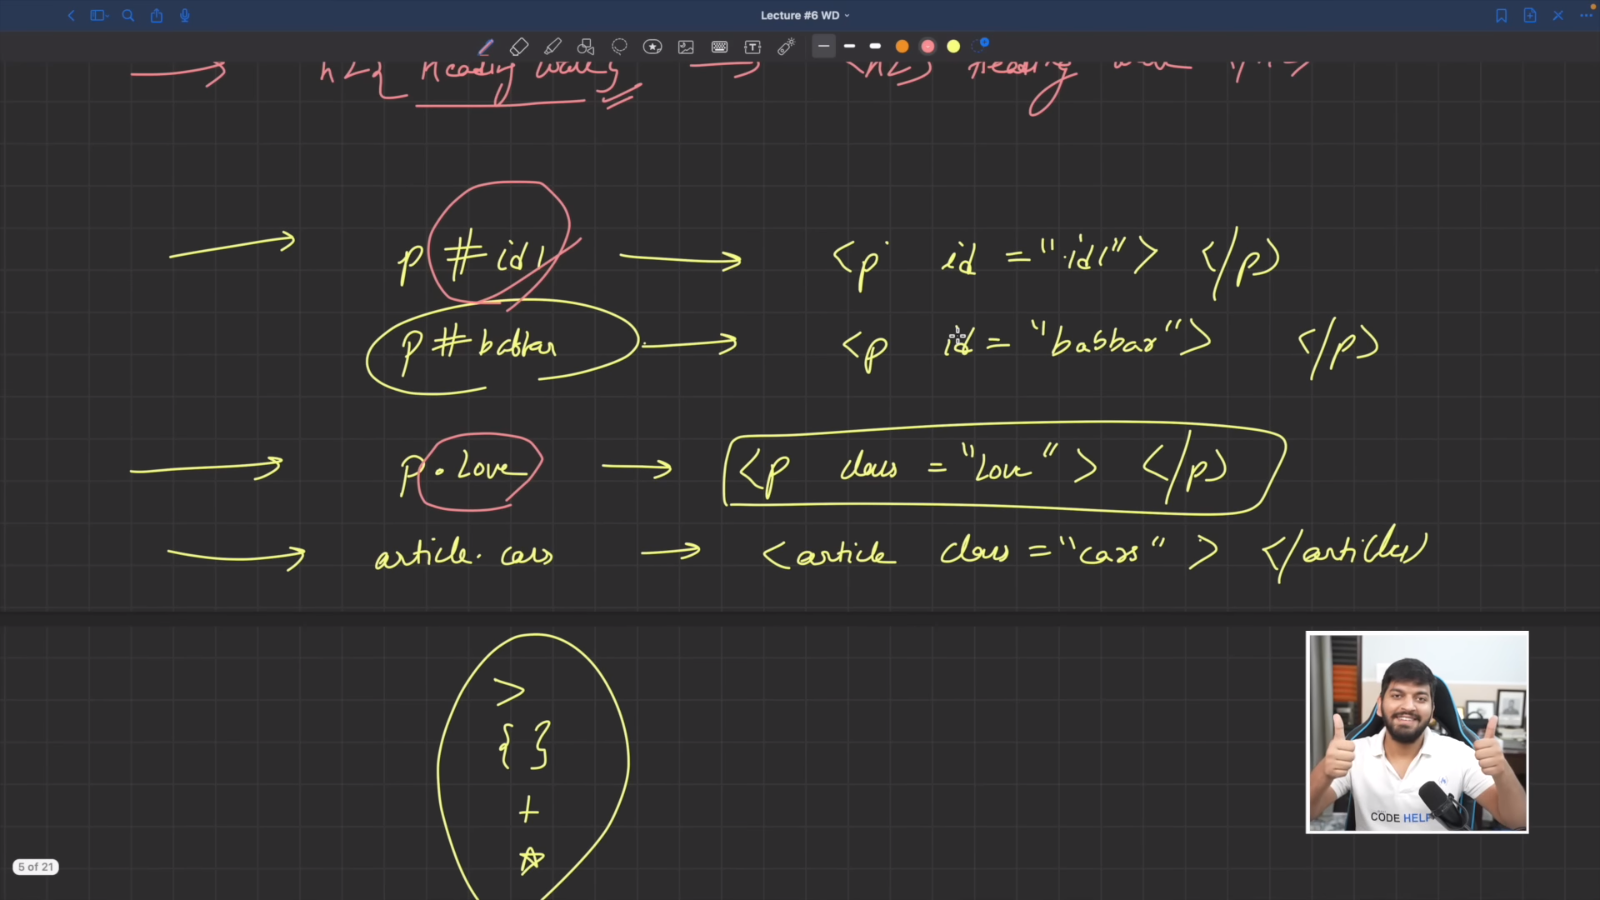 Lecture #6 WD
h2{ Heading
p #id1 <p id ="id1"> </p>
p#babbar <p id = "babbar"> </p>
p.Love <p class = "Love" > </p>
article.cars <article class ="cars" > </article>
>
{ }
+
CODE HELP
5 of 21